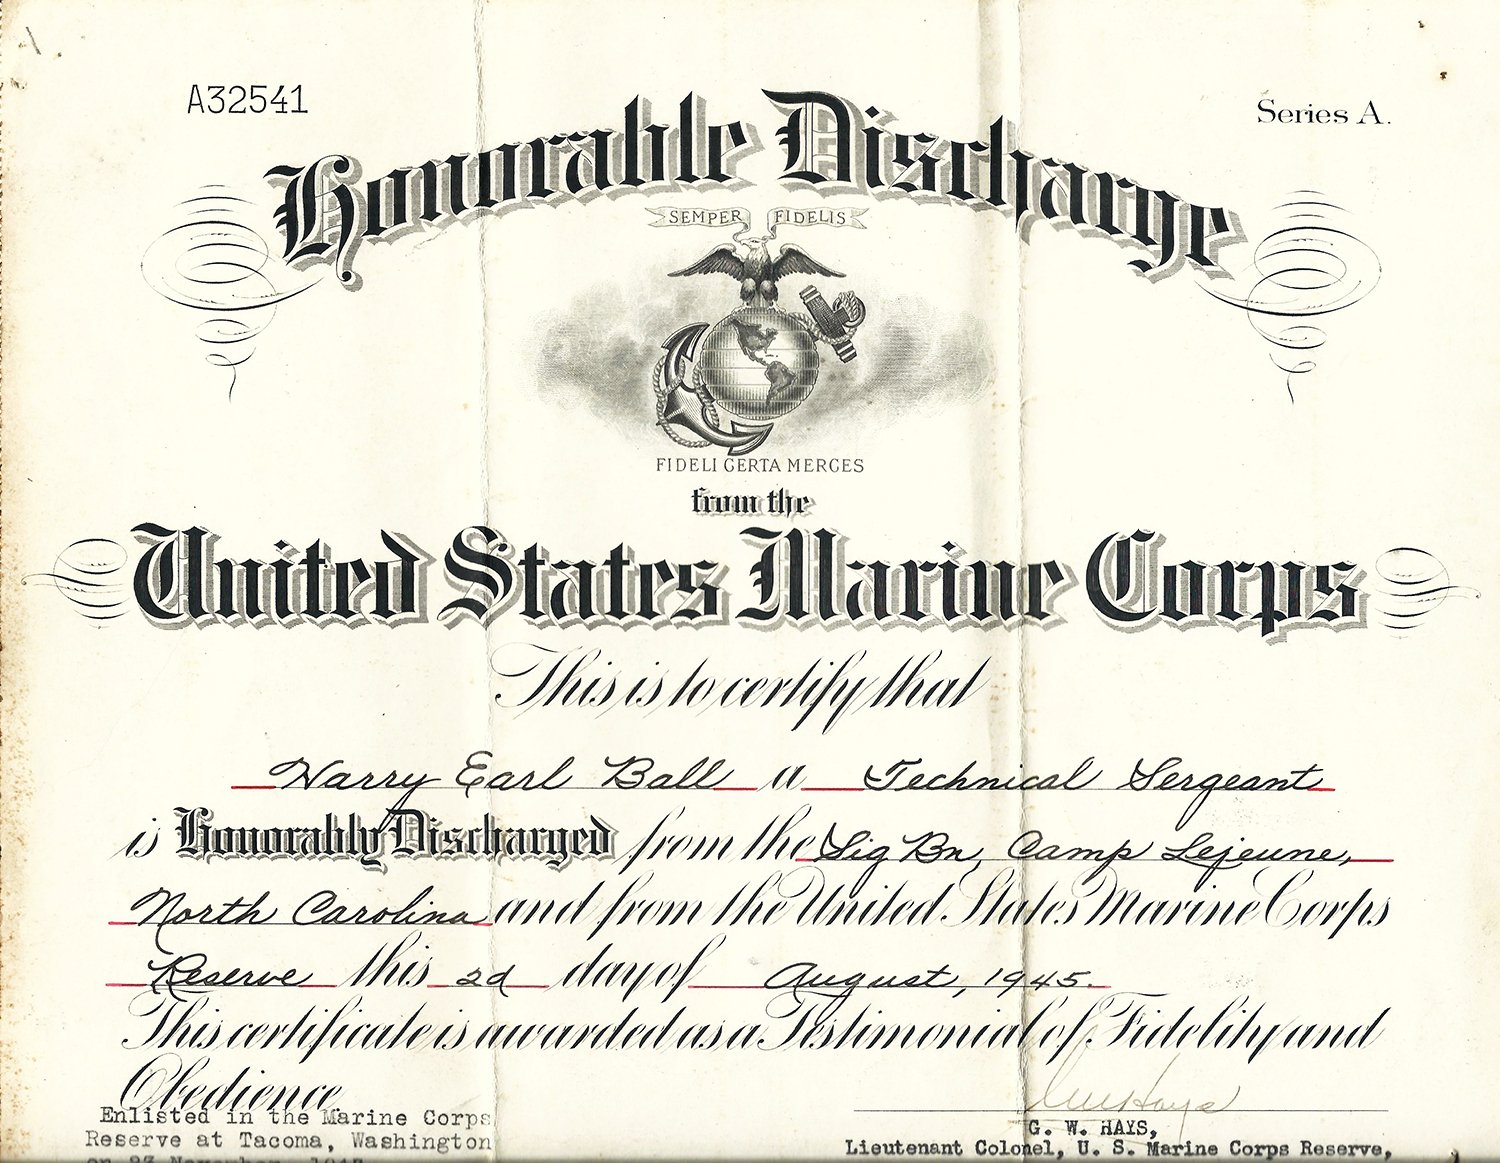 A32541
Series A.
Honorable Discharge
SEMPER FIDELIS
FIDELI CERTA MERCES
from the
United States Marine Corps
This is to certify that
Harry Earl Ball a Technical Sergeant
is Honorably Discharged from the Sig Bn, Camp Lejeune,
North Carolina and from the United States Marine Corps
Reserve this 2d day of August, 1945.
This certificate is awarded as a Testimonial of Fidelity and
Obedience.
Enlisted in the Marine Corps
Reserve at Tacoma, Washington
on 23 November,
G. W. HAYS,
Lieutenant Colonel, U. S. Marine Corps Reserve,